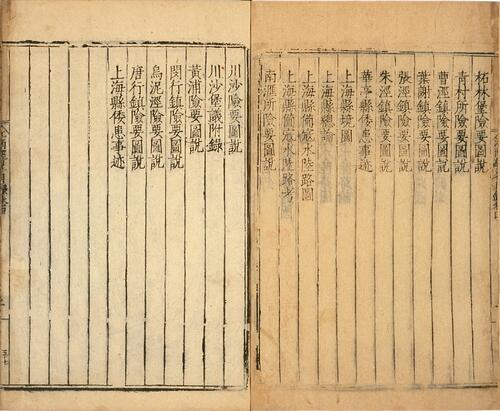 柘林堡險要圖說
青村所險要圖說
曹涇鎮險要圖說
葉謝鎮險要圖說
張涇鎮險要圖說
朱涇鎮險要圖說
華亭縣倭患事迹
上海縣境圖
上海縣總論
上海縣備寇水陸路圖
上海縣備寇水陸路考
南匯所險要圖說
川沙險要圖說
川沙堡議附錄
黃浦險要圖說
閔行鎮險要圖說
烏泥涇險要圖說
唐行鎮險要圖說
上海縣倭患事迹